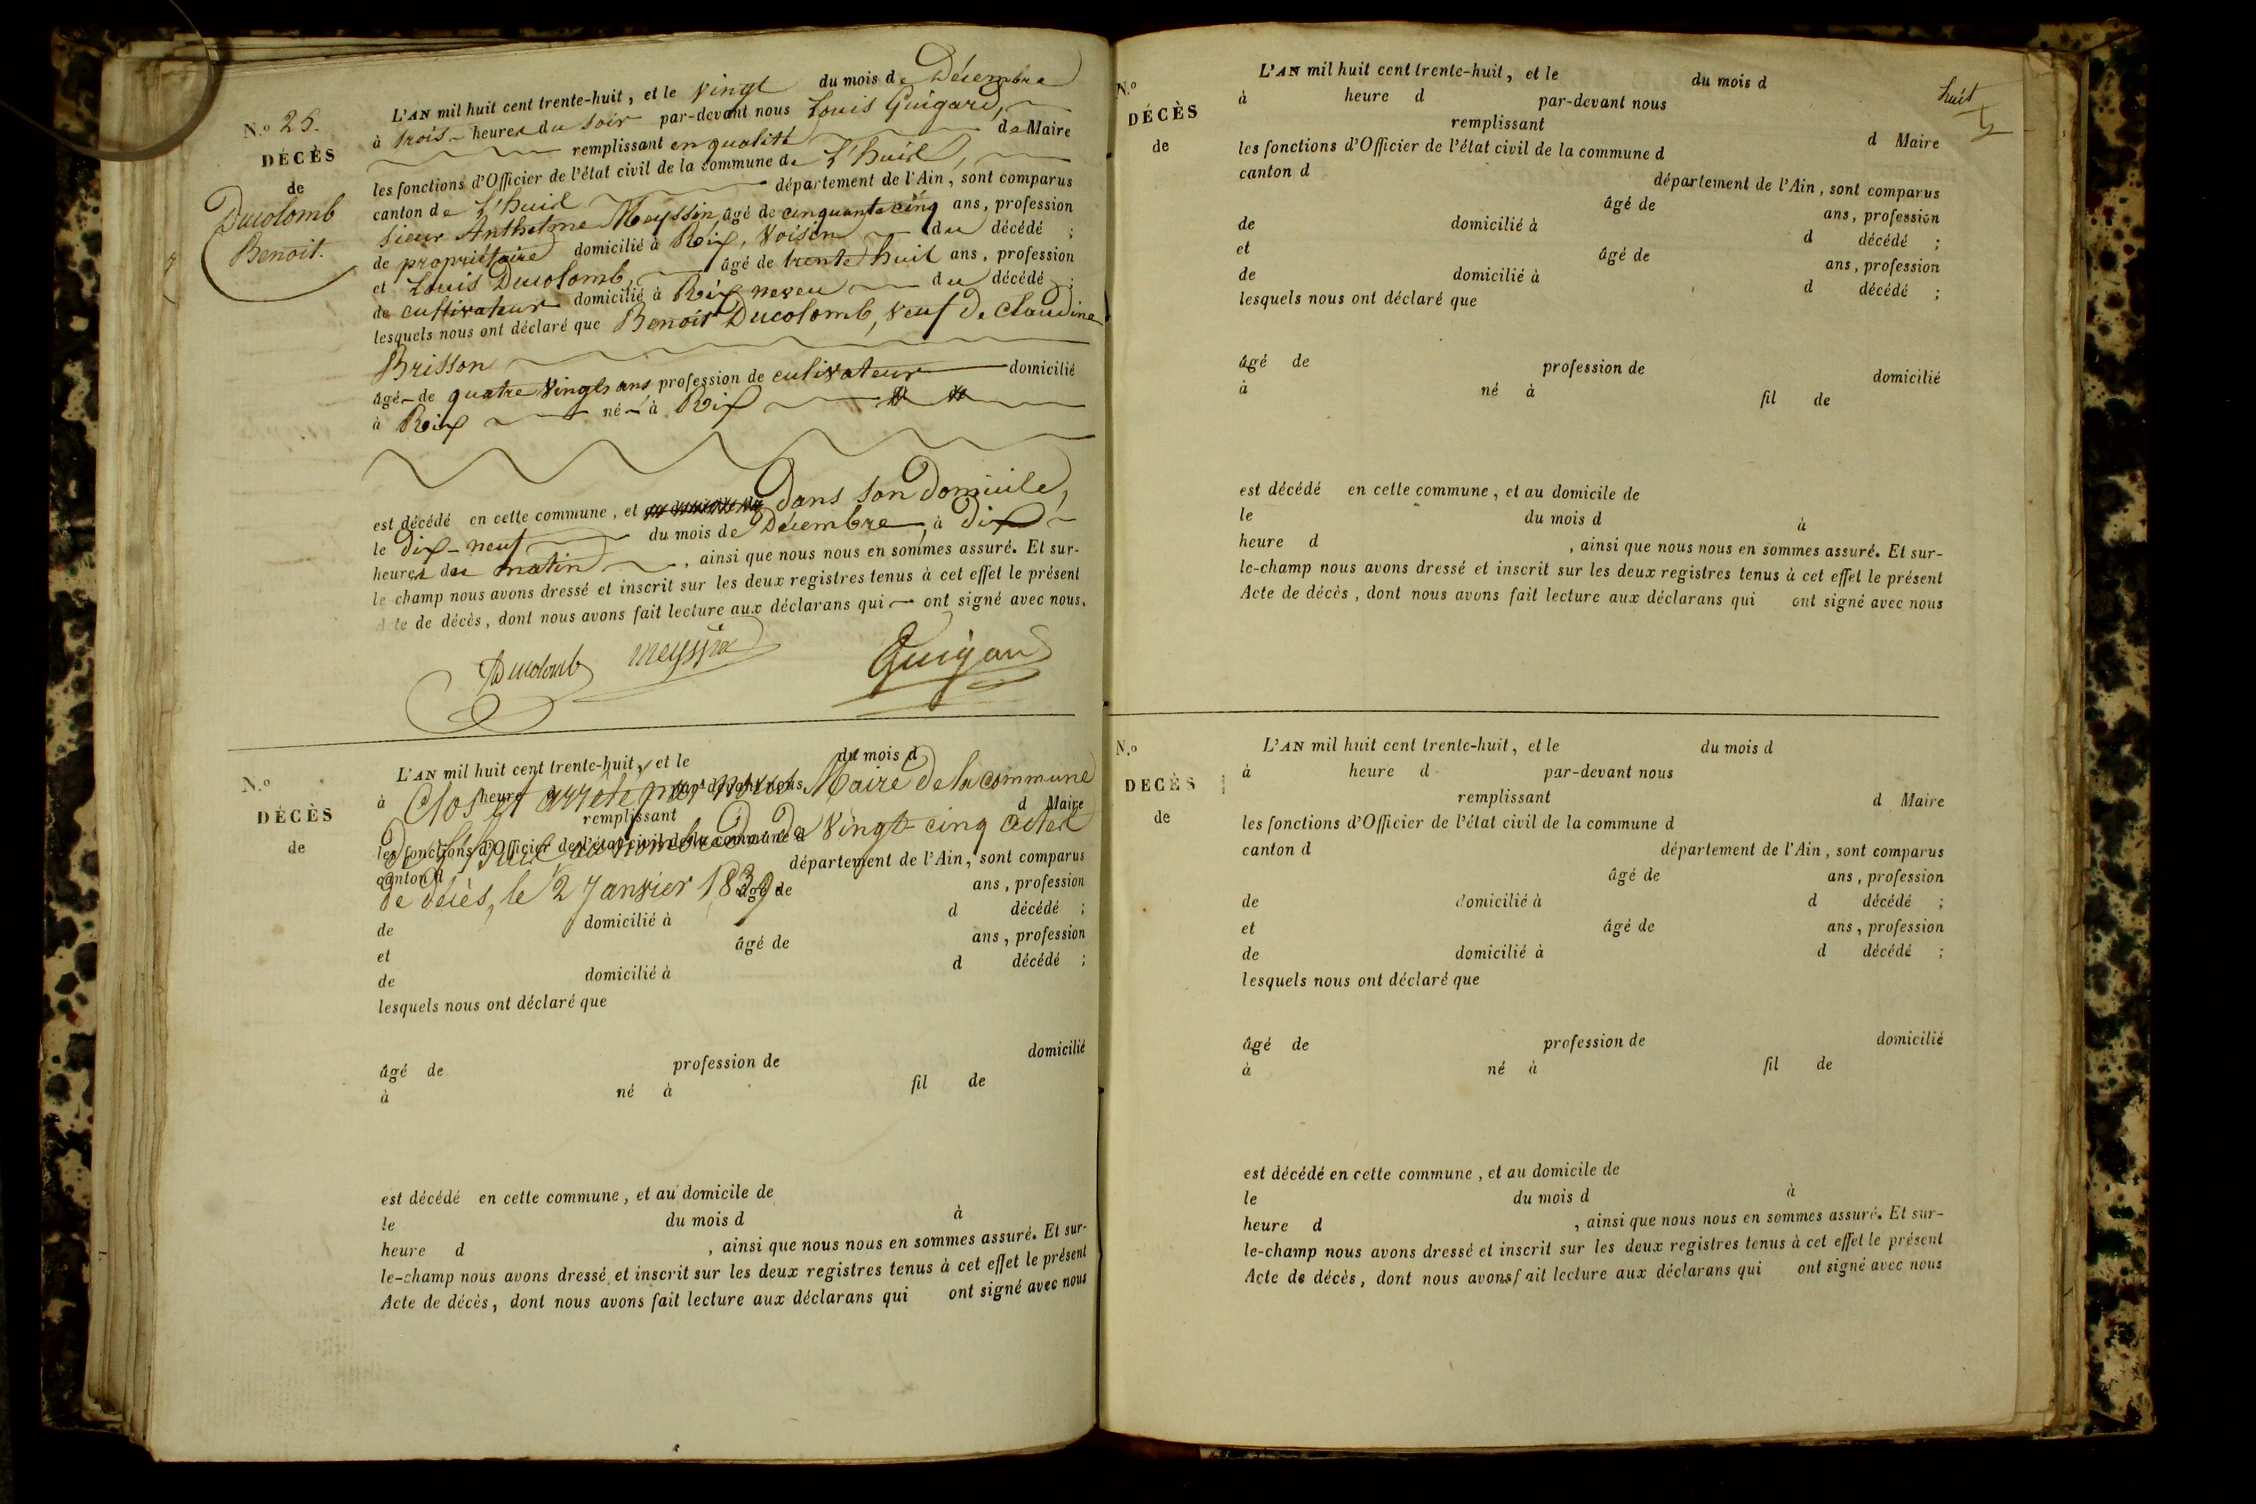 N.o 25.
DÉCÈS
de
Ducolomb
Benoit.
L'AN mil huit cent trente-huit, et le vingt du mois de Décembre
à trois heures du soir par-devant nous Louis Guigard,
remplissant en qualité de Maire
les fonctions d'Officier de l'état civil de la commune de L'huis,
canton de L'huis département de l'Ain, sont comparus
sieur Anthelme Meyssin, âgé de cinquante cinq ans, profession
de propriétaire domicilié à Rix, voisin du décédé ;
et Louis Ducolomb, âgé de trente huit ans, profession
de cultivateur domicilié à Rix neveu du décédé ;
lesquels nous ont déclaré que Benoit Ducolomb, veuf de Claudine
Brisson
âgé de quatre vingts ans profession de cultivateur domicilié
à Rix né à Rix
est décédé en cette commune, et dans son domicile,
le dix-neuf du mois de Décembre, à dix
heures du matin, ainsi que nous nous en sommes assuré. Et sur-
le champ nous avons dressé et inscrit sur les deux registres tenus à cet effet le présent
Acte de décès, dont nous avons fait lecture aux déclarans qui ont signé avec nous.
Ducolomb meyssin Guigard
N.o
DÉCÈS
de
L'AN mil huit cent trente-huit, et le du mois d
à heure par-devant nous
Clos et arrêté par nous Maire de la commune
remplissant d Maire
de L'huis au nombre de vingt-cinq actes
les fonctions d'Officier de l'état civil de la commune d
canton d département de l'Ain, sont comparus
de décès, le 2 Janvier 1839.
âgé de ans, profession
de domicilié à d décédé ;
et âgé de ans, profession
de domicilié à d décédé ;
lesquels nous ont déclaré que
âgé de profession de domicilié
à né à fil de
est décédé en cette commune, et au domicile de
le du mois d à
heure d , ainsi que nous nous en sommes assuré. Et sur-
le-champ nous avons dressé et inscrit sur les deux registres tenus à cet effet le présent
Acte de décès, dont nous avons fait lecture aux déclarans qui ont signé avec nous
huit
N.o
DÉCÈS
de
L'AN mil huit cent trente-huit, et le du mois d
à heure d par-devant nous
remplissant d Maire
les fonctions d'Officier de l'état civil de la commune d
canton d département de l'Ain, sont comparus
âgé de ans, profession
de domicilié à d décédé ;
et âgé de ans, profession
de domicilié à d décédé ;
lesquels nous ont déclaré que
âgé de profession de domicilié
à né à fil de
est décédé en cette commune, et au domicile de
le du mois d à
heure d , ainsi que nous nous en sommes assuré. Et sur-
le-champ nous avons dressé et inscrit sur les deux registres tenus à cet effet le présent
Acte de décès, dont nous avons fait lecture aux déclarans qui ont signé avec nous
N.o
DÉCÈS
de
L'AN mil huit cent trente-huit, et le du mois d
à heure d par-devant nous
remplissant d Maire
les fonctions d'Officier de l'état civil de la commune d
canton d département de l'Ain, sont comparus
âgé de ans, profession
de domicilié à d décédé ;
et âgé de ans, profession
de domicilié à d décédé ;
lesquels nous ont déclaré que
âgé de profession de domicilié
à né à fil de
est décédé en cette commune, et au domicile de
le du mois d à
heure d , ainsi que nous nous en sommes assuré. Et sur-
le-champ nous avons dressé et inscrit sur les deux registres tenus à cet effet le présent
Acte de décès, dont nous avons fait lecture aux déclarans qui ont signé avec nous